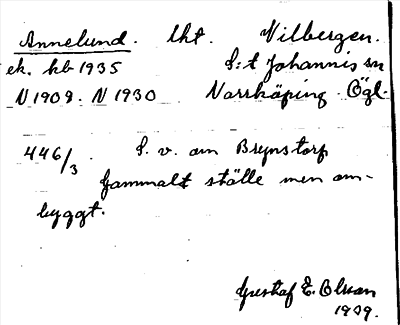 Annelund. lht. Vilbergen.
ek. kb 1935 S:t Johannis sn
N 1909. N 1930 Norrköping. Ögl.
446/3. S. v. om Brynstorp
Gammalt ställe men om-
byggt.
Gustaf E. Olsson
1909.